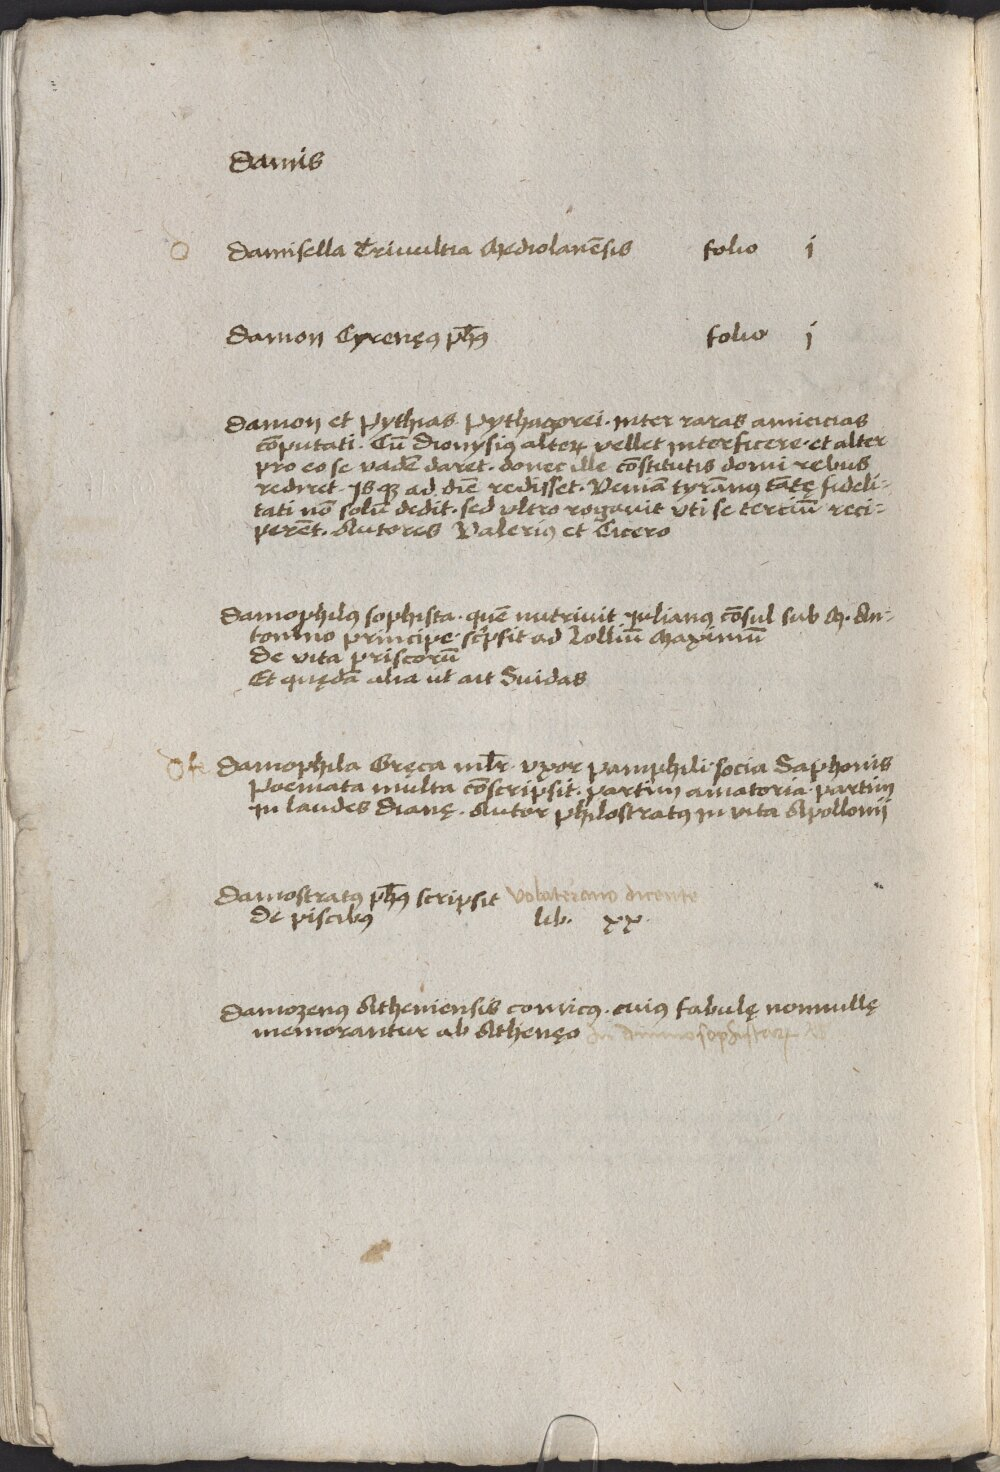 Damis
Damisella Trivultia Mediolanēsis folio j
Damon Cyrenęꝰ ph̄ꝰ folio j
Damon et Pythias Pythagorei. inter raras amicicias
cōputati. Cū Dionysiꝰ alterꝝ vellet interficere. et alter
pro eo se vadē daret. donec ille cōstitutis domi rebus
rediret. Is qꝫ ad diē redisset. Veniā tyrānꝰ tātę fideli-
tati nō solū dedit. sed vltro rogavit vti se terciū reci-
perēt. Autores Valeriꝰ et Cicero
Damophilꝰ sophista. quē nutrivit Julianꝰ cōsul sub M. An-
tonino principe. scͥpsit ad Lolliū Maximū
De vita priscorū
Et quędā alia ut ait Suidas
Damophila Gręca ml̄r. vxor Pamphili. socia Saphonis
Poemata multa cōscripsit. partim amatoria. partim
in laudes Dianę. Autor Philostratꝰ in vita Apollonii
Damostratꝰ ph̄ꝰ scripsit Volaterano dicente
De piscibꝰ lib. xx.
Damozenꝰ Atheniensis comicꝰ. cuiꝰ fabulę nonnullę
memorantur ab Athenęo